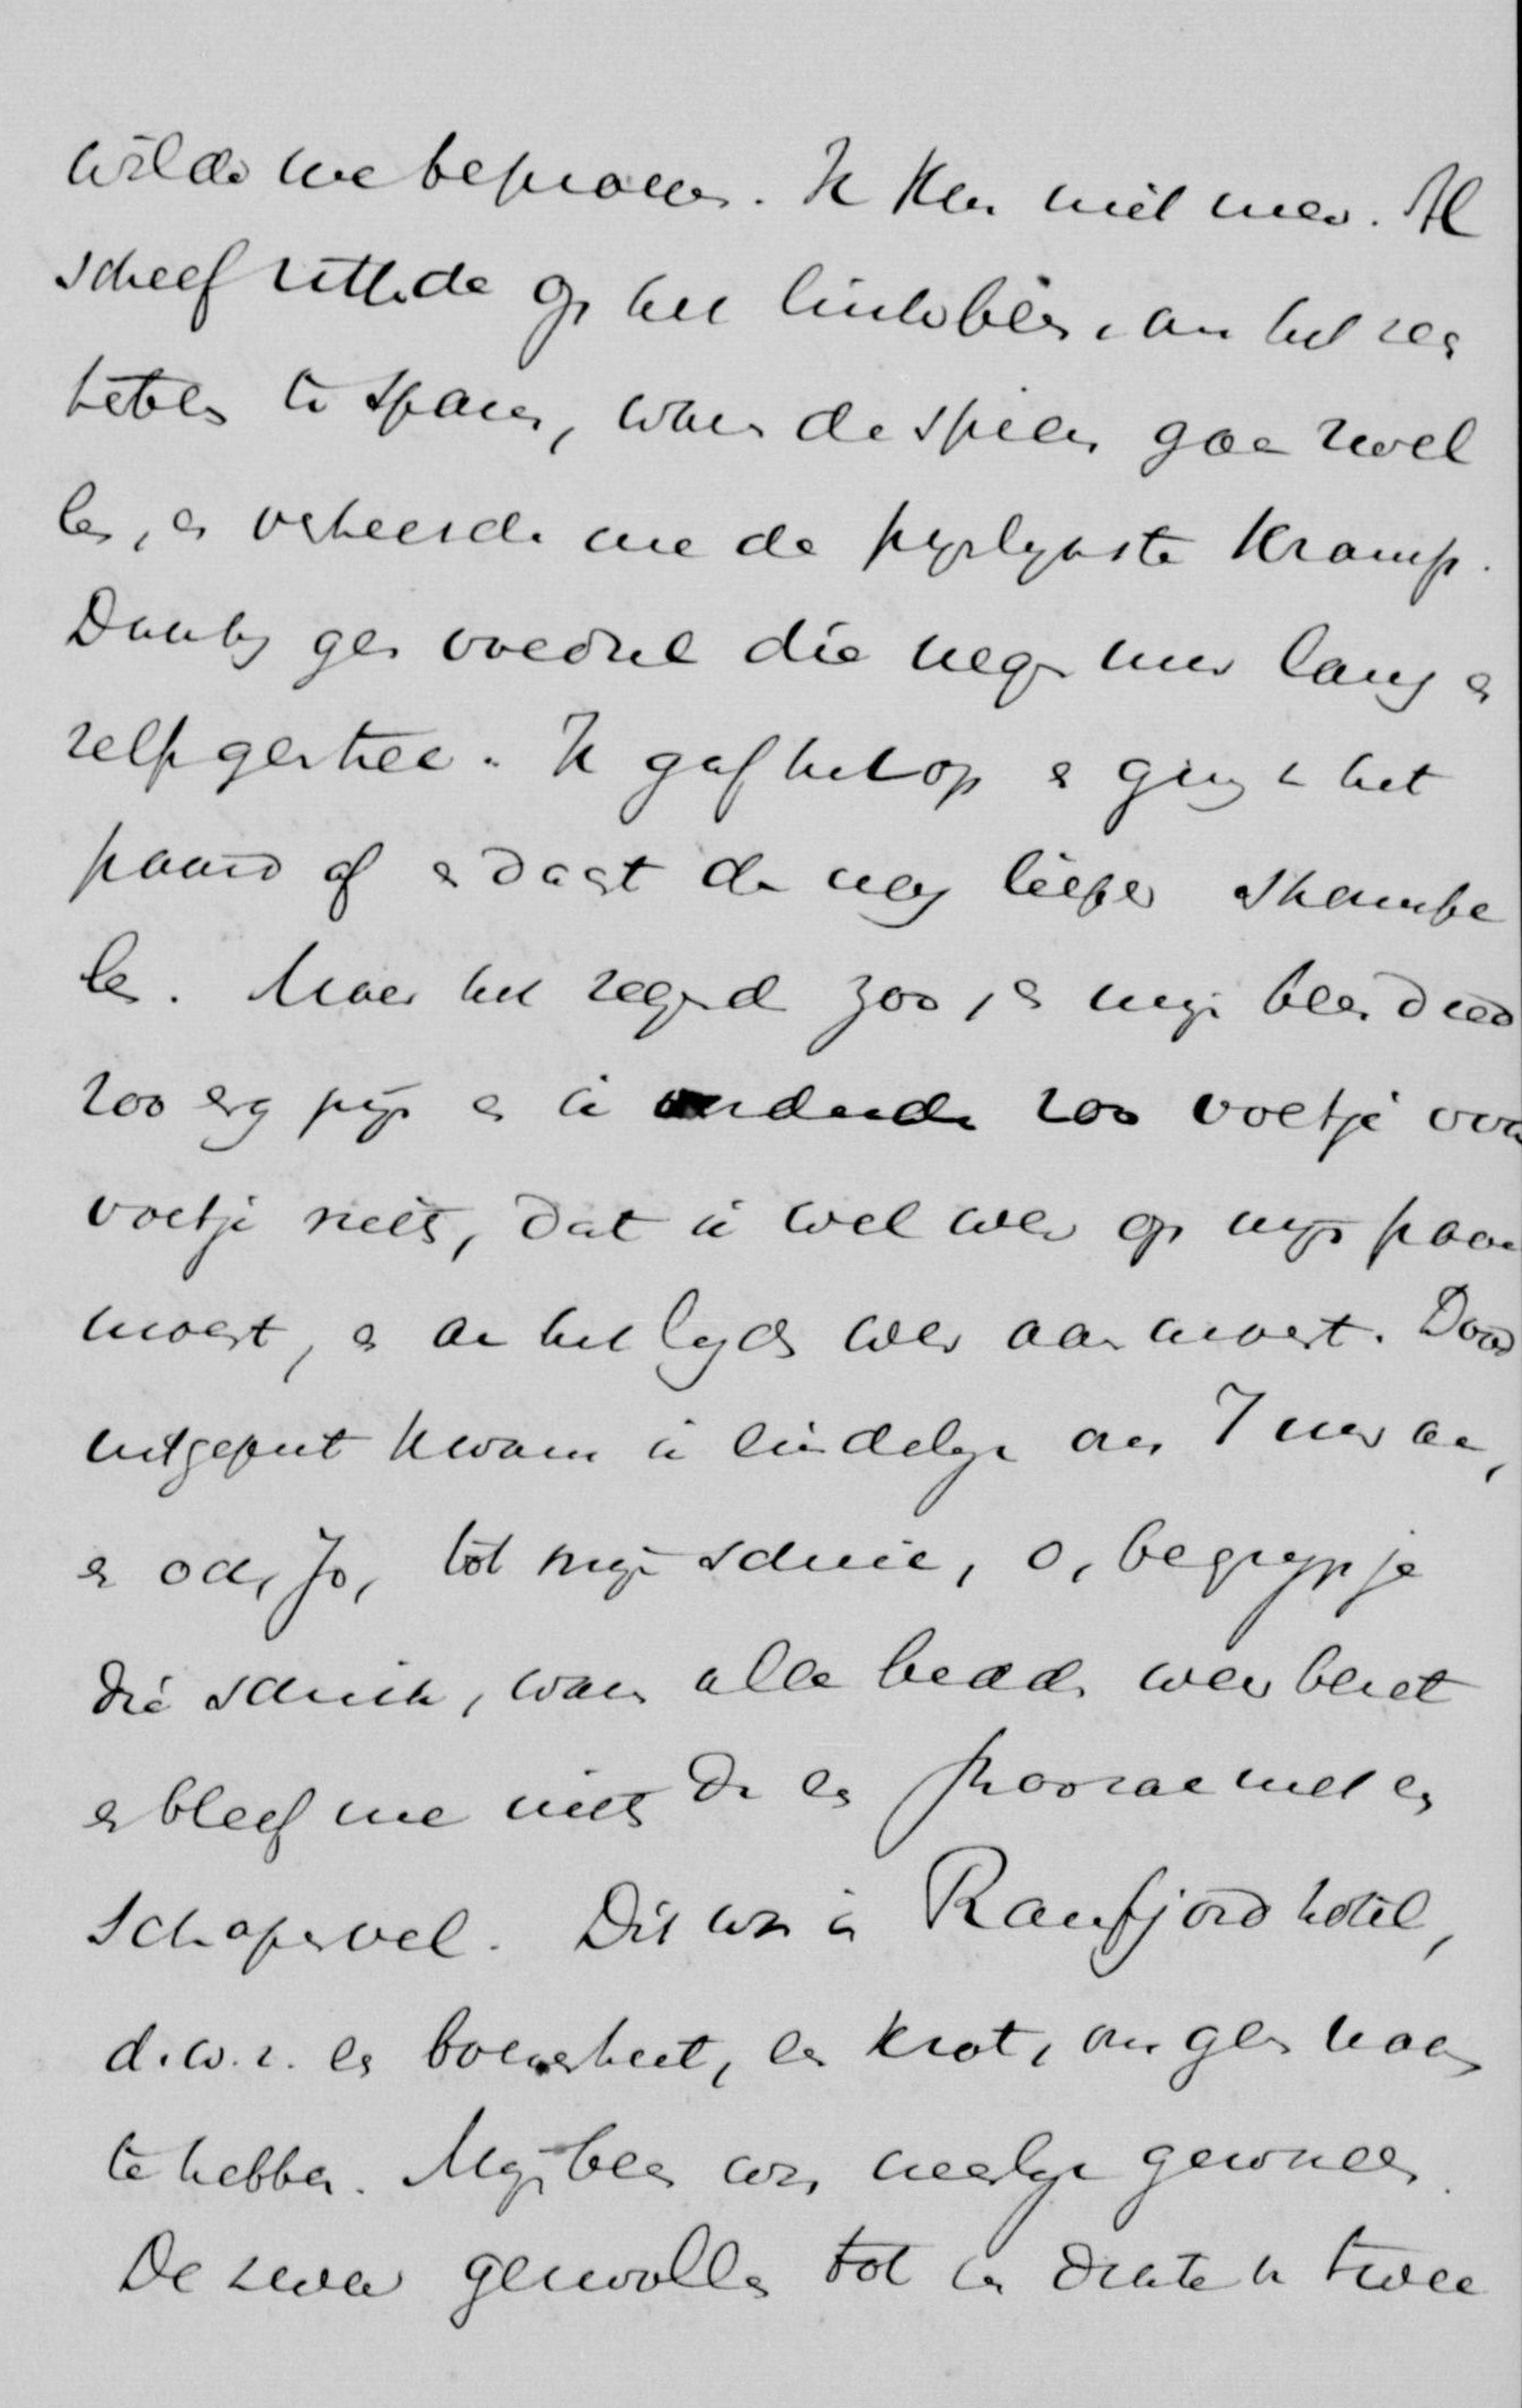 wilde me beproeven. Ik kon niet meer. Al
scheef zittende op het linkerbeen, om het rech
tere te sparen, waren de spieren gaan zwel
len, en verteerde me de pijnlijkste kramp.
Daarbij geen voedsel die negen uur lang en
zelf gestren. Ik gaf het op en ging van het
paard af en dacht dan nog liever strompe
len. Maar het regende zoo, en mijn been deed
zoo erg pijn en ik vorderde zoo voetje voor
voetje niets, dat ik wel weer op mijn paard
moest, en aan het lijden weer aan moest. Dood
uitgeput kwam ik eindelijk om 7 uur aan,
en och, Jo, tot mijn schrik, o, begrijp je
die schrik, waren alle bedden weer bezet
en bleef me niets dan een stroozak met een
schapevel. Dit was in Ranfjord hotel,
d.w.z. een boerenhut, een krot, om geen naam
te hebben. Mijn been was neerlijk gewonden.
De zenuw gezwollen tot een dikte van twee